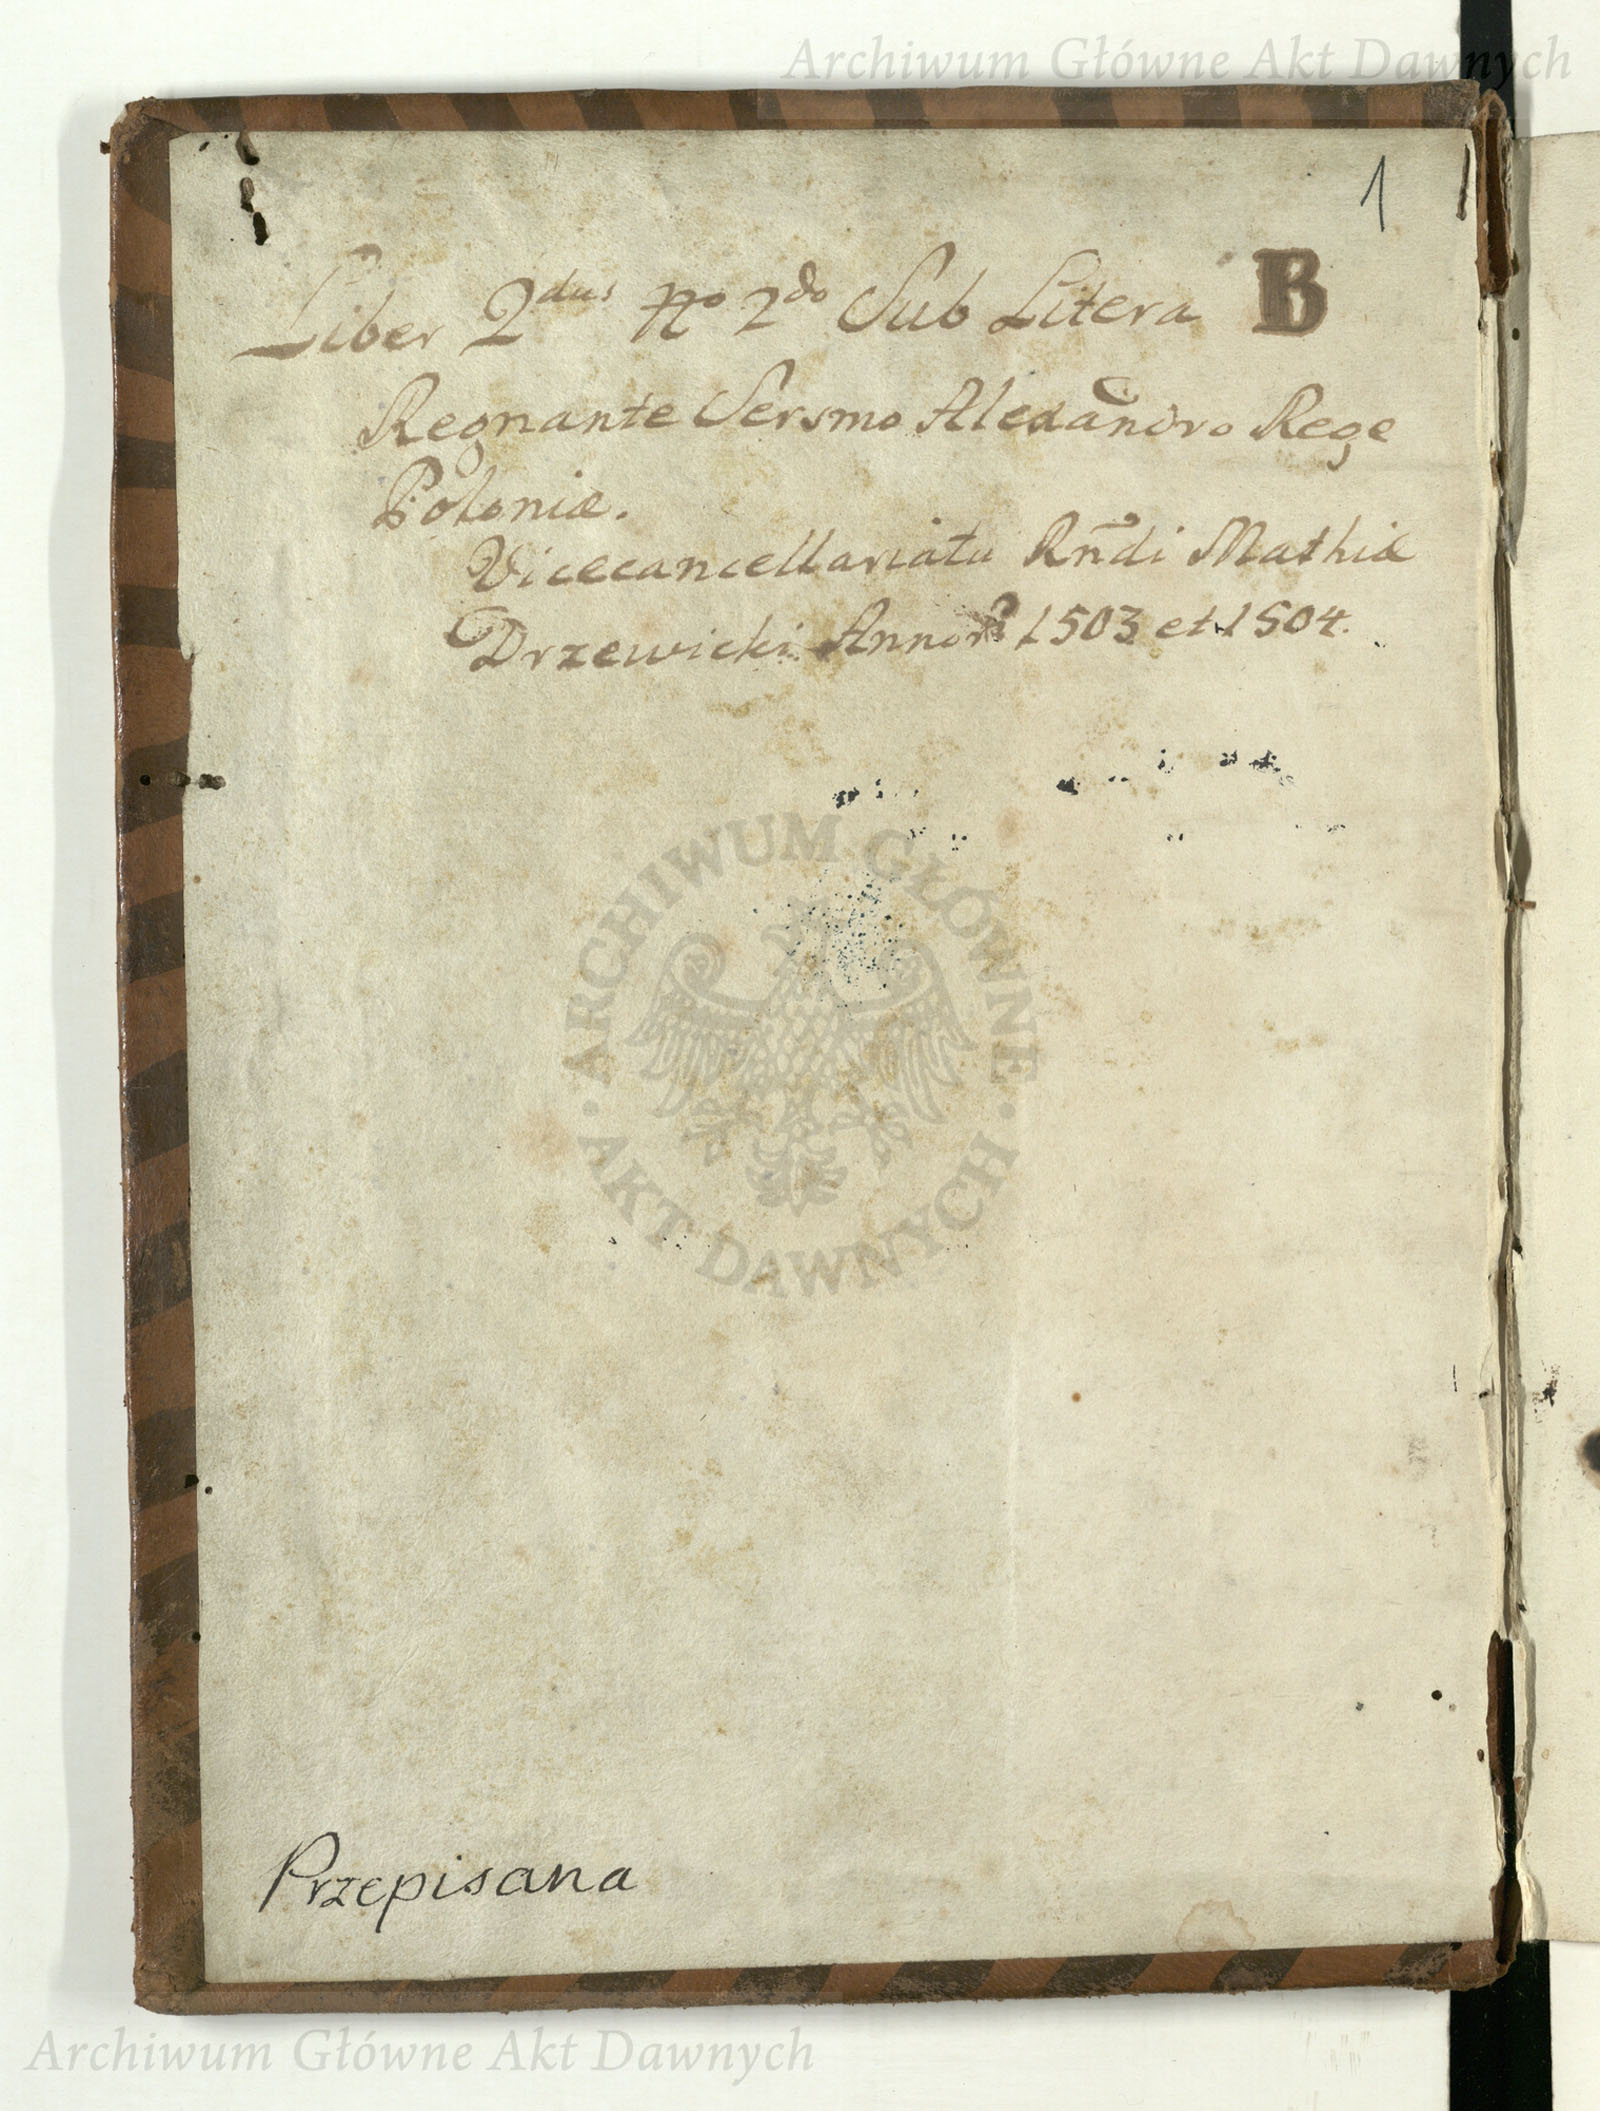 Archiwum Główne Akt Dawnych
1
Liber 2dus No 2do Sub Litera B
Regnante Sersmo Alexandro Rege
Poloniæ.
Vicecancellariatu Rńdi Mathiæ
Drzewicki Annorũ 1503 et 1504.
ARCHIWUM GŁÓWNE
AKT DAWNYCH
Przepisana
Archiwum Główne Akt Dawnych